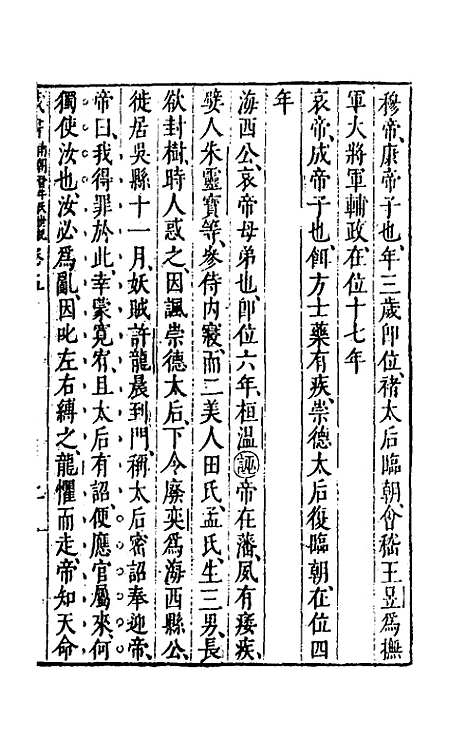 穆帝、康帝子也、年三歲卽位褚太后臨朝、會稽王昱爲撫
軍大將軍輔政在位十七年
哀帝、成帝子也、餌方士藥有疾、崇德太后復臨朝在位四
年
海西公、哀帝母弟也、卽位六年、桓溫誣帝在藩、夙有痿疾、
嬖人朱靈寶等、參侍內寢、而二美人田氏、孟氏、生三男、長
欲封樹、時人惑之、因諷崇德太后、下令廢奕爲海西縣公、
徙居吳縣十一月、妖賊許龍晨到門、稱太后密詔奉迎帝、
帝曰、我得罪於此、幸蒙寬宥、且太后有詔、便應官屬來、何
獨使汝也汝必爲亂、因叱左右縛之、龍懼而走、帝知天命
藏書